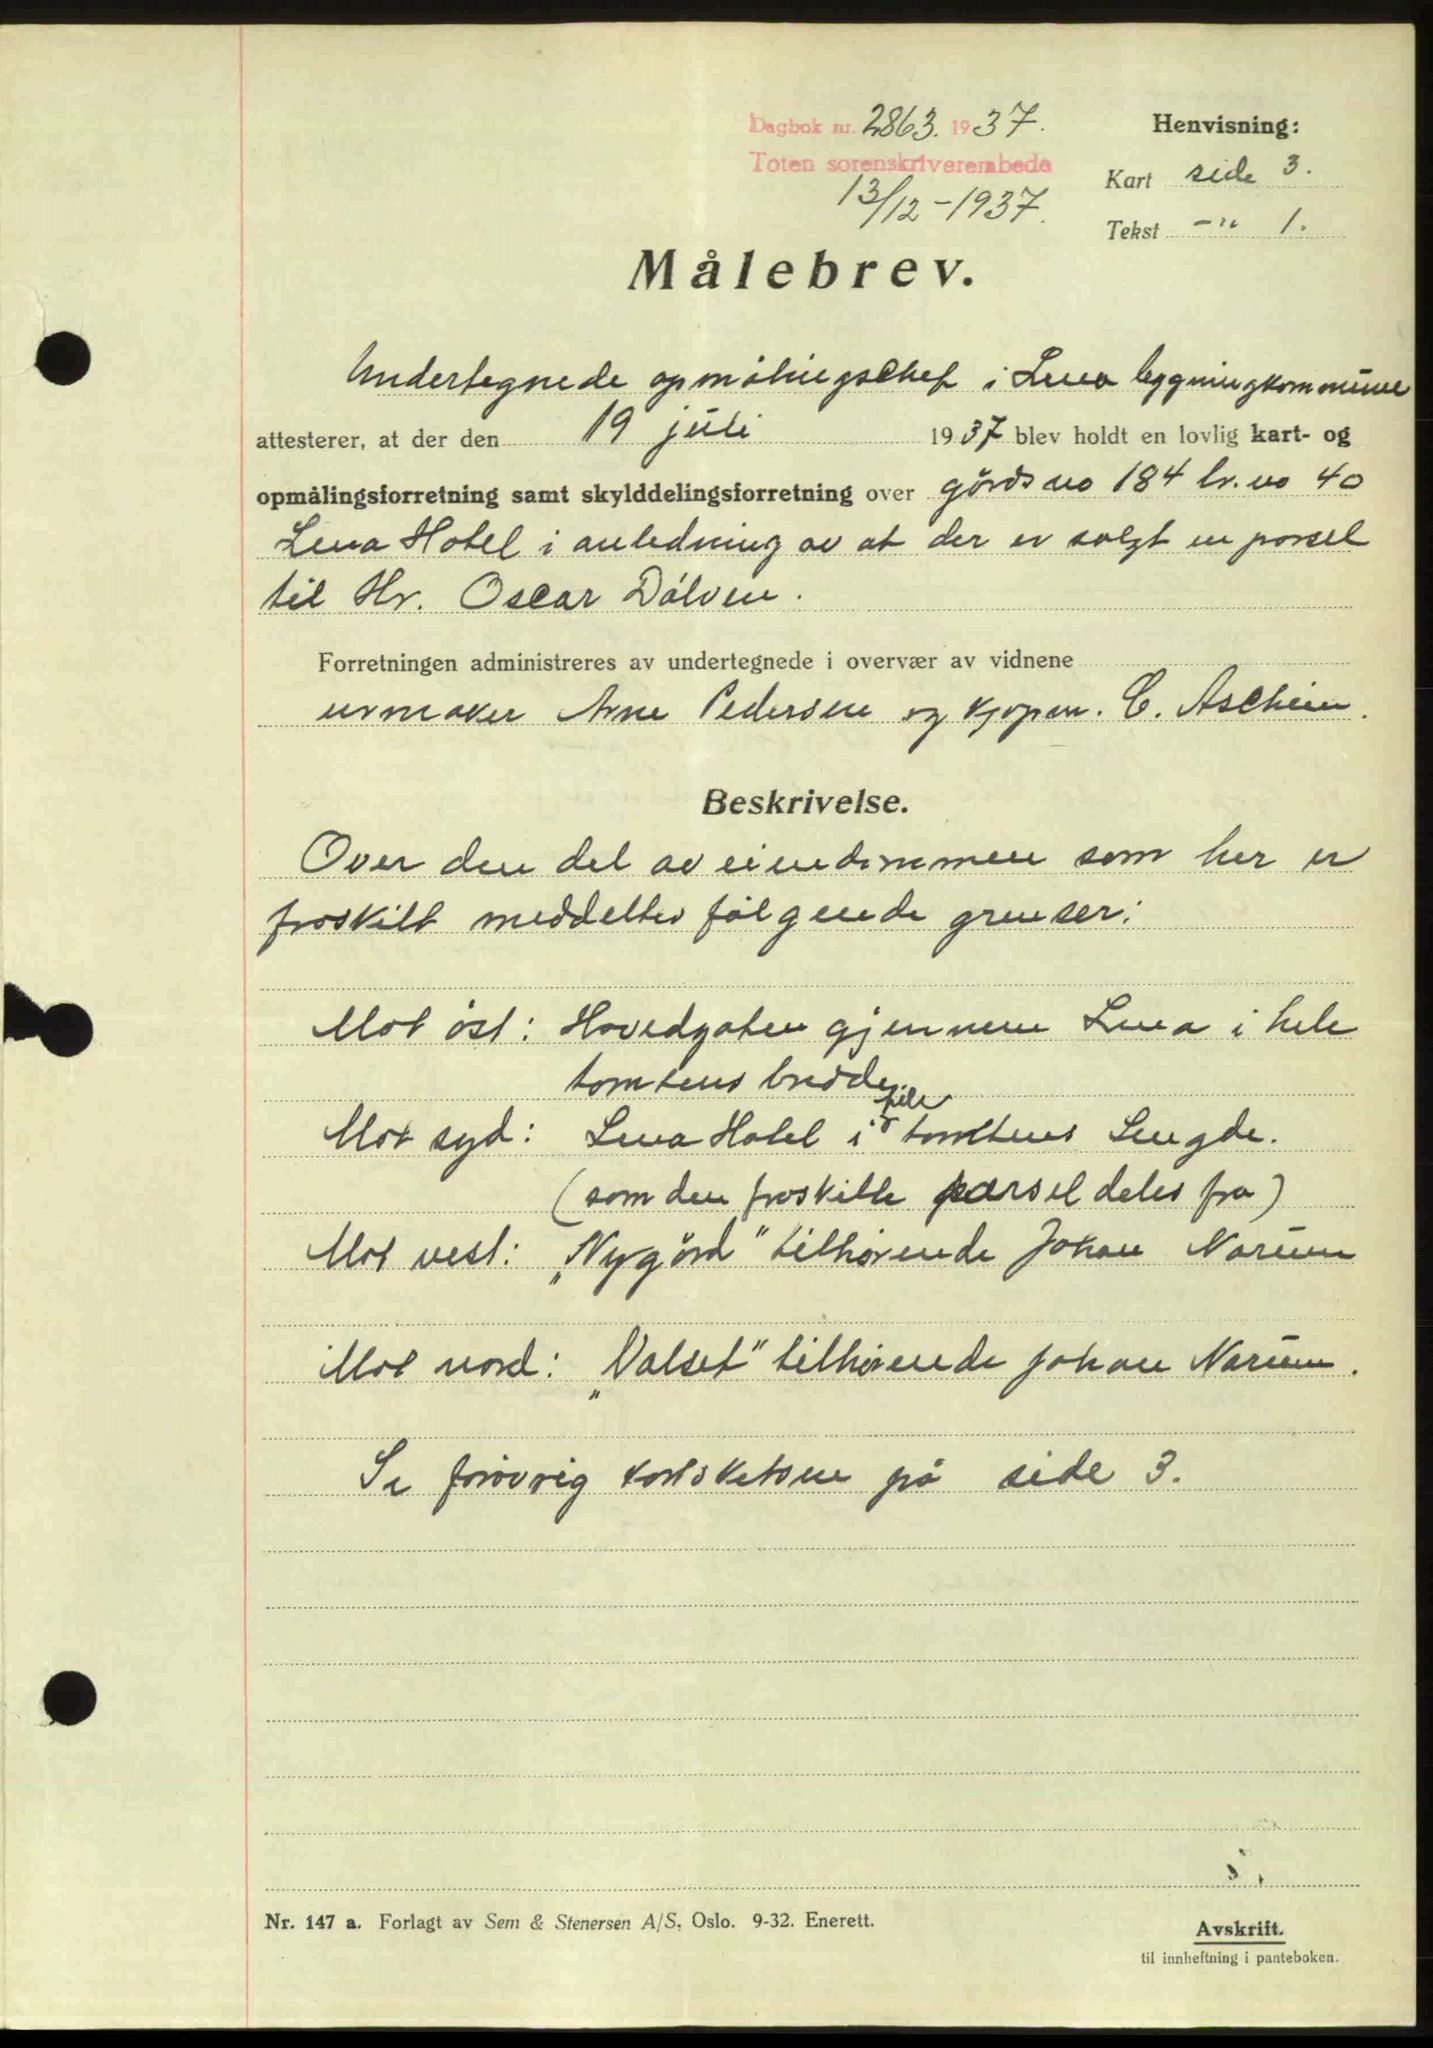 Dagbok nr. 2863. 1937.
Toten sorenskriverembede
13/12-1937.
Henvisning:
Kart side 3.
Tekst -"- 1.
Målebrev.
Undertegnede opmålingschef i Lena bygningkommune
attesterer, at der den 19 juli 1937 blev holdt en lovlig kart- og
opmålingsforretning samt skylddelingsforretning over gårds no 184 br. no 40
Lena Hotel i anledning av at der er solgt en parsel
til Hr. Oscar Dålven.
Forretningen administreres av undertegnede i overvær av vidnene
urmaker Arne Pedersen og kjøpm. C. Ascheim.
Beskrivelse.
Over den del av eiendommen som her er
fraskilt meddeles følgende grenser:
Mot øst: Hovedgaten gjennem Lena i hele
tomtens bredde.
Mot syd: Lena Hotel i hele tomtens Lengde.
(som den fraskilte parsel deles fra)
Mot vest: „Nygård" tilhørende Johan Narum
Mot nord: „Valset" tilhørende Johan Narum.
Se forøvrig kartsketsen på side 3.
Nr. 147 a. Forlagt av Sem & Stenersen A/S, Oslo. 9-32. Enerett.
Avskrift.
til innheftning i panteboken.